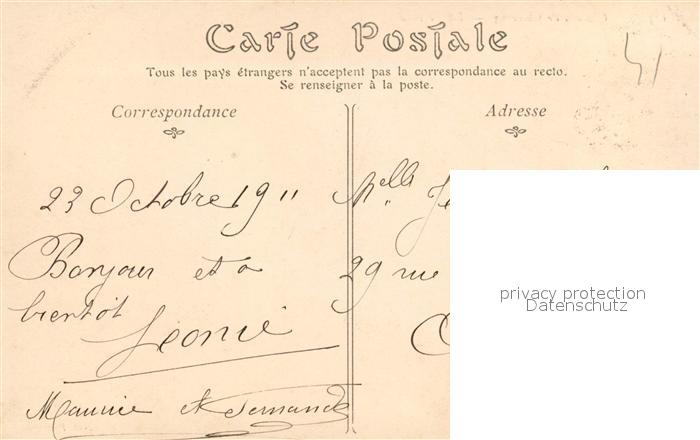 Carte Postale
Tous les pays étrangers n'acceptent pas la correspondance au recto.
Se renseigner à la poste.
41
Correspondance
Adresse
23 Octobre 1911
Bonjour et a
bientôt
Léonie
Maurice et Fernande
Melle
29 rue
privacy protection
Datenschutz